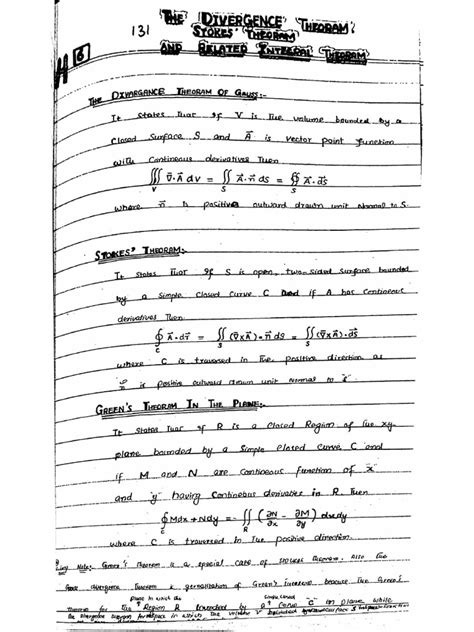 131
THE DIVERGENCE THEORAM,
STOKES' THEORAM
AND RELATED INTEGRAL THEORAM
6
THE DIVARGANCE THEORAM OF GAUSS:-
It states that if V is the volume bounded by a
closed surface S and A⃗ is vector point function
with Contineous derivatives Then
∭_V ∇⃗.A⃗ dV = ∬_S A⃗.n⃗ ds = ∯_S A⃗.ds⃗
where n⃗ is positive outward drawn unit normal to S.
STOKES' THEORAM:-
It states that if S is open, two-sided surface bounded
by a simple closed curve C and if A has contineous
derivatives Then
∮_C A⃗.dr⃗ = ∬_S (∇⃗xA⃗).n⃗ ds = ∬_S (∇⃗xA⃗).ds⃗
where C is traversed in the positive direction as
n⃗ is positive outward drawn unit normal to
GREEN'S THEORAM IN THE PLANE:-
It states that if R is a closed Region of the xy-
plane bounded by a simple closed curve C and
if M and N are contineous function of x
and y having contineous derivaties in R. Then
∮_C Mdx + Ndy = ∬_R (∂N/∂x - ∂M/∂y) dxdy
where C is traversed in the positive direction.
Note:- Green's theoram is a special case of stokes theoram. Also the
Gauss divergence theoram is generalisation of Green's theoram because the Green's
plane in which the simple closed
theoram for the Region R by a curve C in plane while
the divergence theoram for space in which the volume V surface S